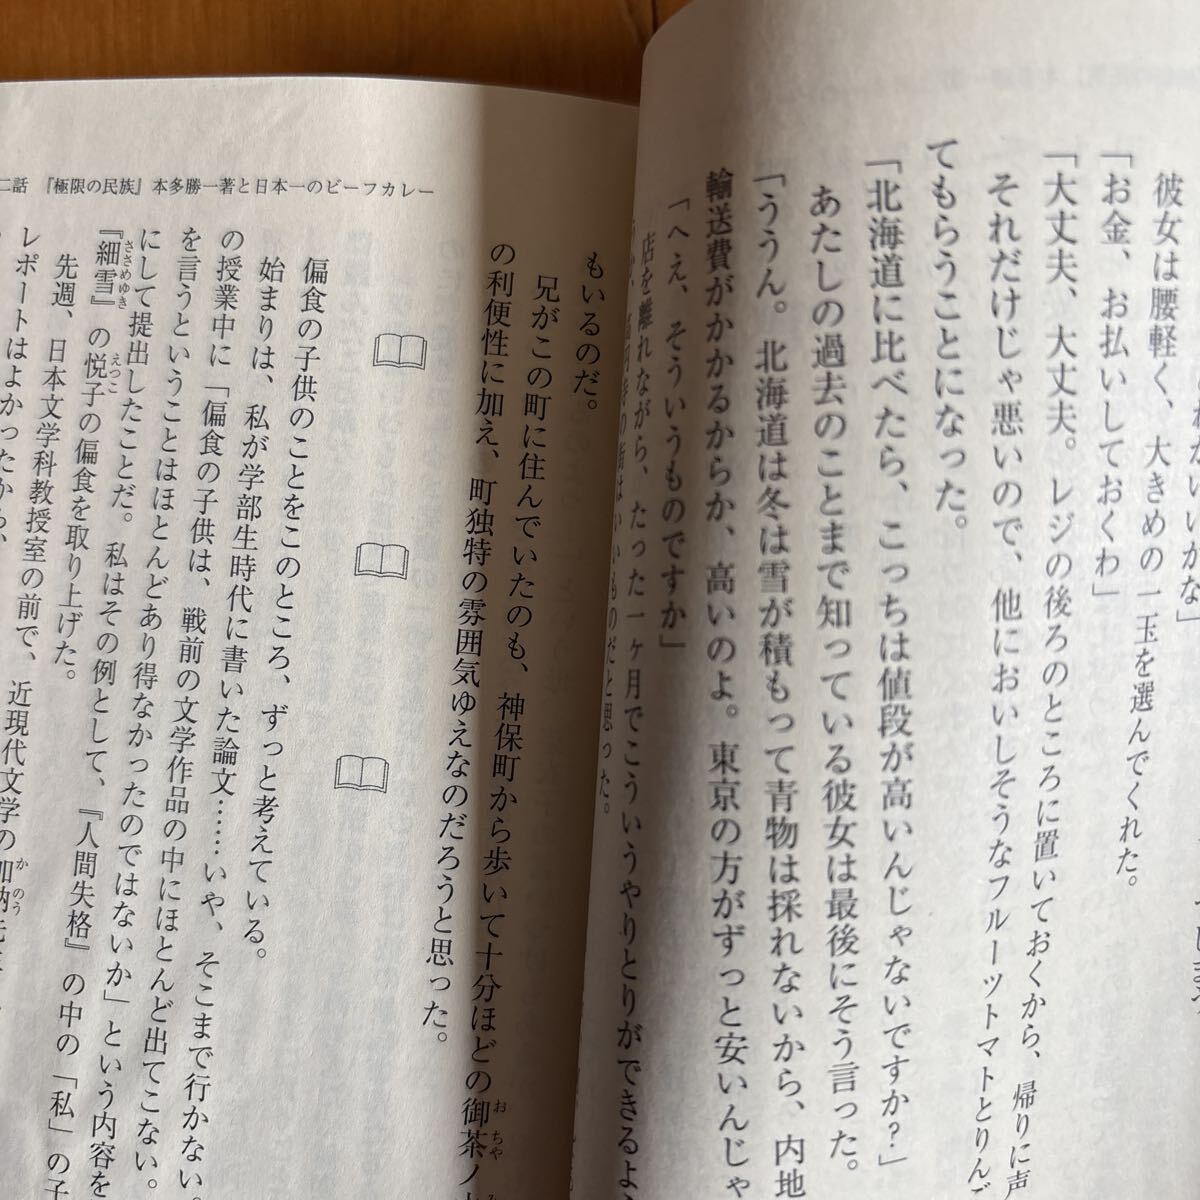 彼女は腰軽く、大きめの一玉を選んでくれた。
「お金、お払いしておくわ」
「大丈夫、大丈夫。レジの後ろのところに置いておくから、帰りに声
それだけじゃ悪いので、他においしそうなフルーツトマトとりんご
てもらうことになった。
「北海道に比べたら、こっちは値段が高いんじゃないですか？」
あたしの過去のことまで知っている彼女は最後にそう言った。
「ううん。北海道は冬は雪が積もって青物は採れないから、内地
輸送費がかかるからか、高いのよ。東京の方がずっと安いんじゃ
「へえ、そういうものですか」
店を離れながら、たった一ヶ月でこういうやりとりができるよ
の街はいいものだと思った。
二話 『極限の民族』本多勝一著と日本一のビーフカレー
もいるのだ。
兄がこの町に住んでいたのも、神保町から歩いて十分ほどの御茶ノ
の利便性に加え、町独特の雰囲気ゆえなのだろうと思った。
偏食の子供のことをこのところ、ずっと考えている。
始まりは、私が学部生時代に書いた論文……いや、そこまで行かない。
の授業中に「偏食の子供は、戦前の文学作品の中にほとんど出てこない。
を言うということはほとんどあり得なかったのではないか」という内容を
にして提出したことだ。私はその例として、『人間失格』の中の「私」の子
『細雪』の悦子の偏食を取り上げた。
先週、日本文学科教授室の前で、近現代文学の加納
レポートはよかったから、